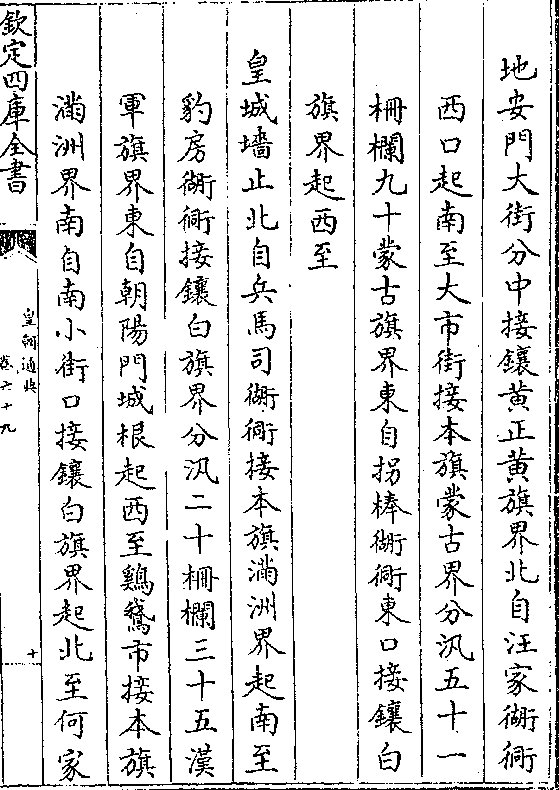 地安門大街分中接鑲黃正黃旗界北自汪家衚衕
西口起南至大市街接本旗蒙古界分汛五十一
柵欄九十蒙古旗界東自拐棒衚衕東口接鑲白
旗界起西至
皇城墻止北自兵馬司衚衕接本旗滿洲界起南至
豹房衚衕接鑲白旗界分汛二十柵欄三十五漢
軍旗界東自朝陽門城根起西至鷄鵞市接本旗
滿洲界南自南小街口接鑲白旗界起北至何家
欽定四庫全書
皇朝通典
卷六十九
十